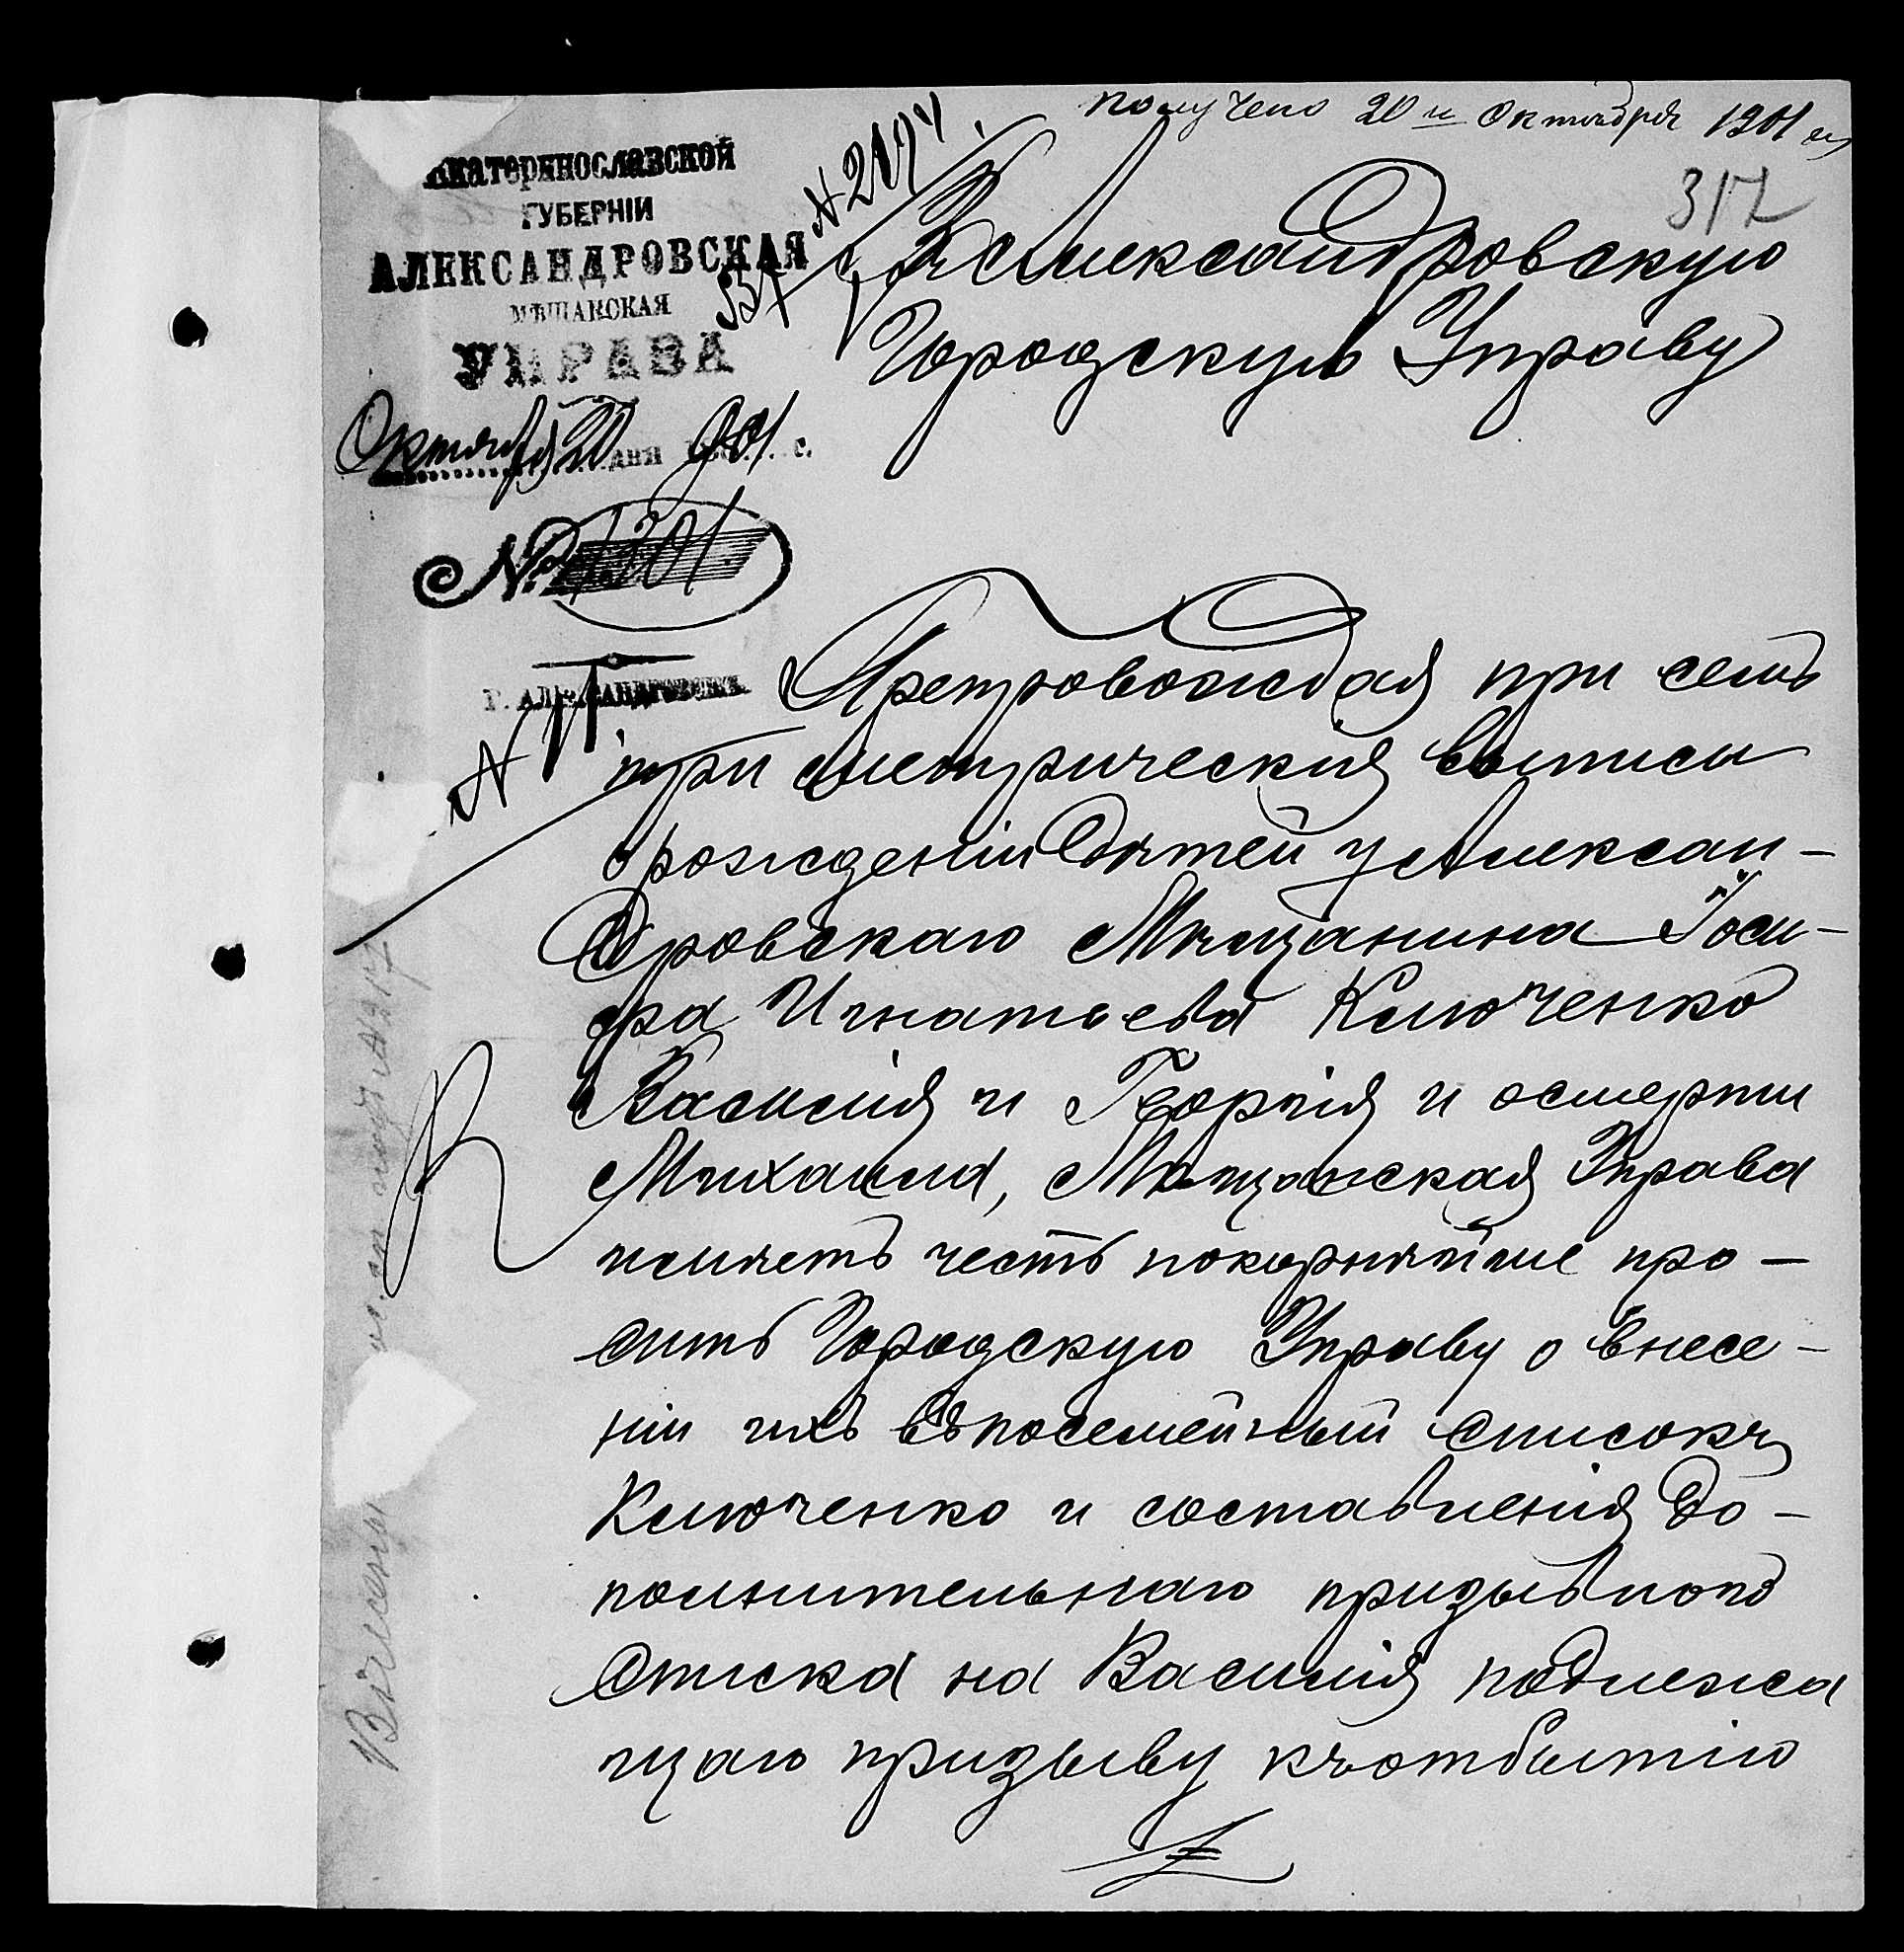 получено 20 и Октября 1901 г
317
Екатеринославской
ГУБЕРНІИ
АЛЕКСАНДРОВСКАЯ
МѢЩАНСКАЯ
УПРАВА
Октября 20 дня 901 г.
№ 1301
Г. АЛЕКСАНДРОВСКЪ
Въ Александровскую
Городскую Управу
Препровождая при семъ
три метрическія выписи
о рожденіи дѣтей у Алексан-
дровскаго Мѣщанина Іоси-
фа Игнатьева Ключенко
Василія и Георгія и о смерти
Михаила, Мѣщанская Управа
имѣетъ честь покорнѣйше про-
сить Городскую Управу о внесе-
ніи ихъ въ посемейный списокъ
Ключенко и составленія до-
полнительнаго призывного
списка на Василія подлежа
щаго призыву къ отбытію
Включены